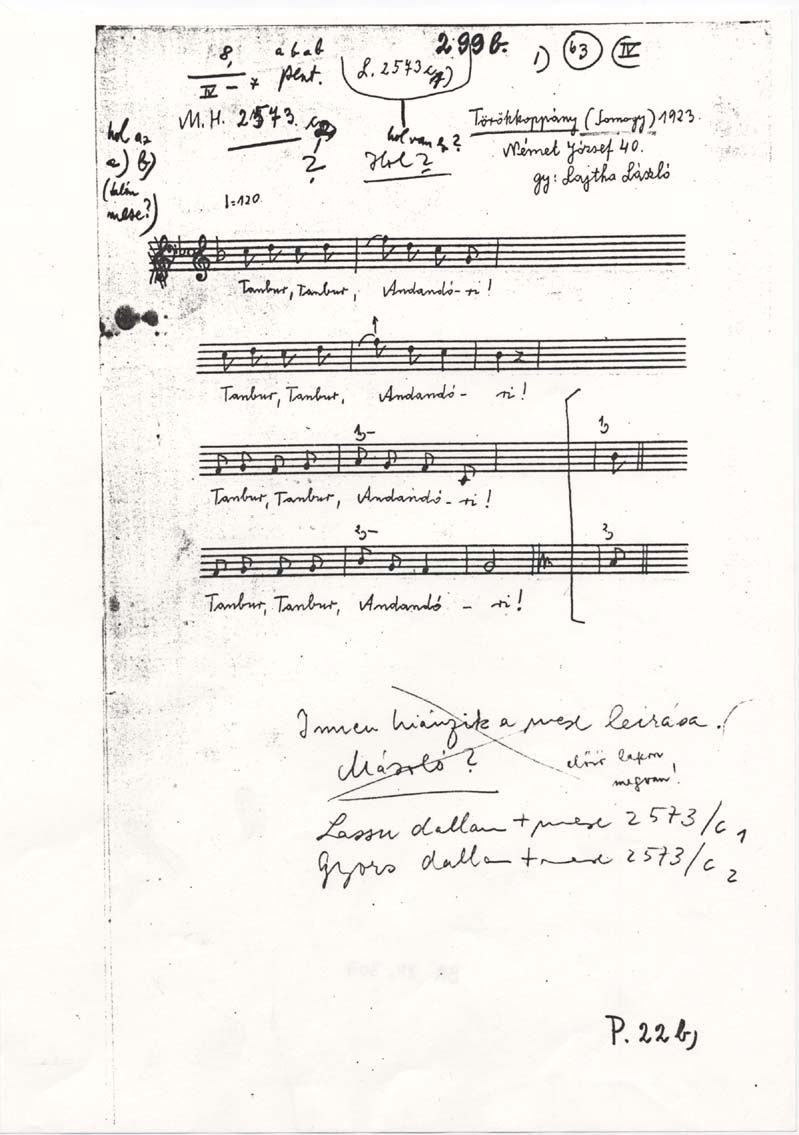 299b.
8,
a b a b
IV – 7
pent.
L. 2573 c
1) 63 IV
M. H. 2573. c
hol van ez?
Hol?
?
Törökkoppány (Somogy) 1923.
Német József 40.
gy: Lajtha László
hol az
a) b)
(talán
mese?)
=120.
Tanbur, Tanbur, Andandó-ri!
Tanbur, Tanbur, Andandó- ri!
1)-
1)
Tanbur, Tanbur, Andandó-ri!
2)-
2)
Tanbur, Tanbur, Andandó - ri!
Innen hiányzik a mese leirása.
Másoló?
előző lapon
megvan!
Lassu dallam + mese 2573/c 1
Gyors dallam + mese 2573/c 2
P. 22b,